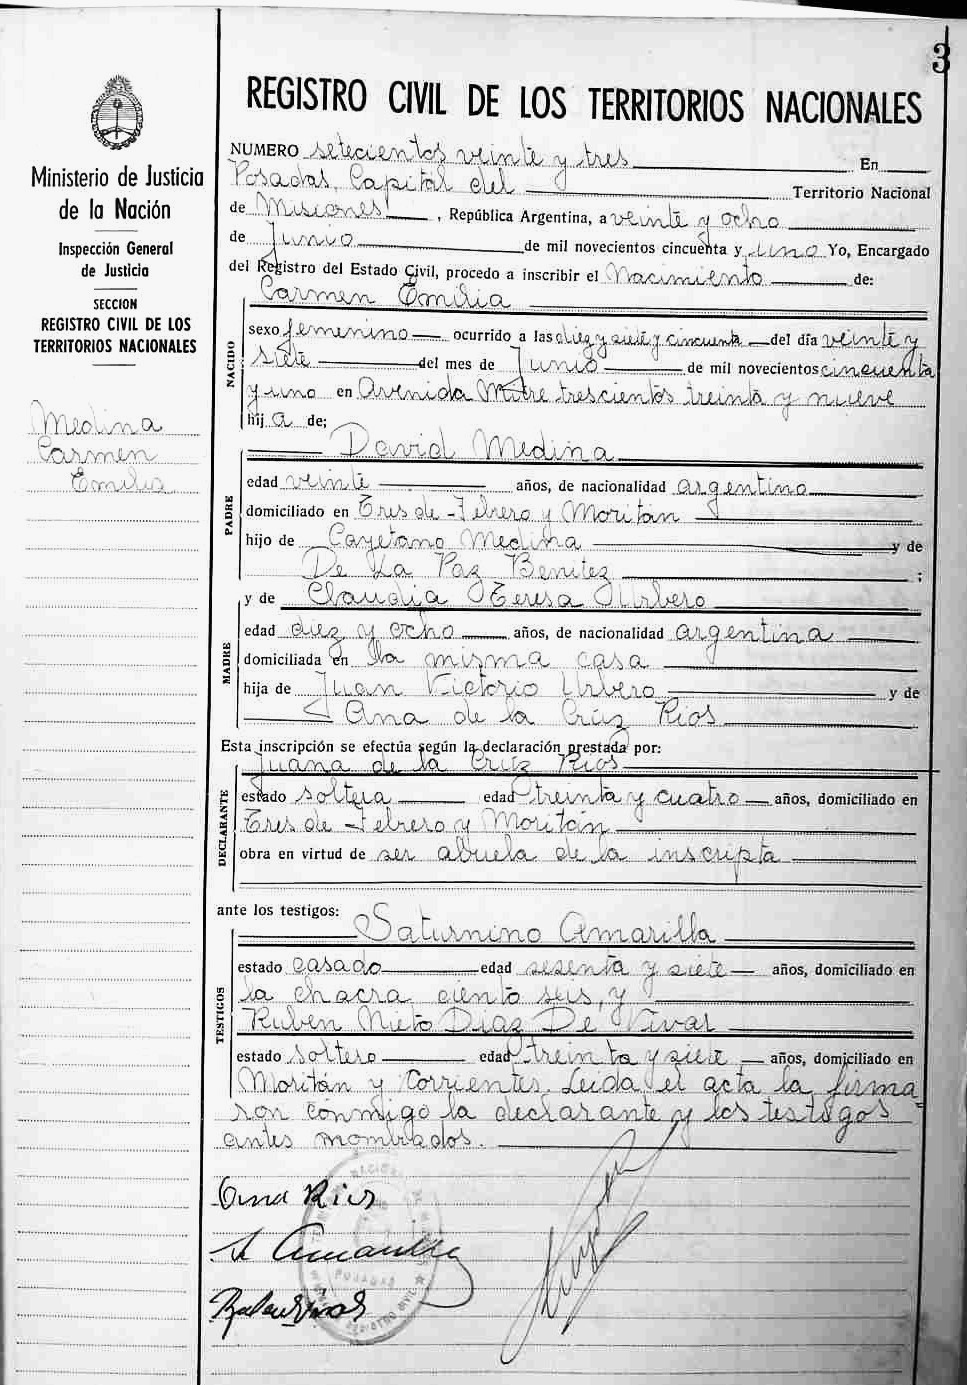 3
REGISTRO CIVIL DE LOS TERRITORIOS NACIONALES
Ministerio de Justicia
de la Nación
Inspección General
de Justicia
SECCION
REGISTRO CIVIL DE LOS
TERRITORIOS NACIONALES
Medina
Carmen
Emilia
NUMERO setecientos veinte y tres En
Posadas, Capital del Territorio Nacional
de Misiones, República Argentina, a veinte y ocho
de Junio de mil novecientos cincuenta y uno Yo, Encargado
del Registro del Estado Civil, procedo a inscribir el Nacimiento de:
Carmen Emilia
NACIDO
sexo femenino ocurrido a las diez y siete y cincuenta del día veinte y
siete del mes de Junio de mil novecientos cincuenta
y uno en Avenida Mitre trescientos treinta y nueve
hija de;
David Medina
PADRE
edad veinte años, de nacionalidad argentino
domiciliado en Tres de Febrero y Moritán
hijo de Cayetano Medina y de
De La Paz Benitez ;
y de Claudia Teresa Urbero
MADRE
edad diez y ocho años, de nacionalidad argentina
domiciliada en la misma casa
hija de Juan Victorio Urbero y de
Ana de la Cruz Rios
Esta inscripción se efectúa según la declaración prestada por:
Juana de la Cruz Rios
DECLARANTE
estado soltera edad treinta y cuatro años, domiciliado en
Tres de Febrero y Moritán
obra en virtud de ser abuela de la inscripta
ante los testigos:
Saturnino Amarilla
TESTIGOS
estado casado edad sesenta y siete años, domiciliado en
la chacra ciento seis, y
Ruben Nieto Diaz De Vivar
estado soltero edad treinta y siete años, domiciliado en
Moritán y Corrientes. Leída el acta la firma
ron conmigo la declarante y los testigos
antes nombrados.
Ana Rios
POSADAS
REGISTRO CIVIL